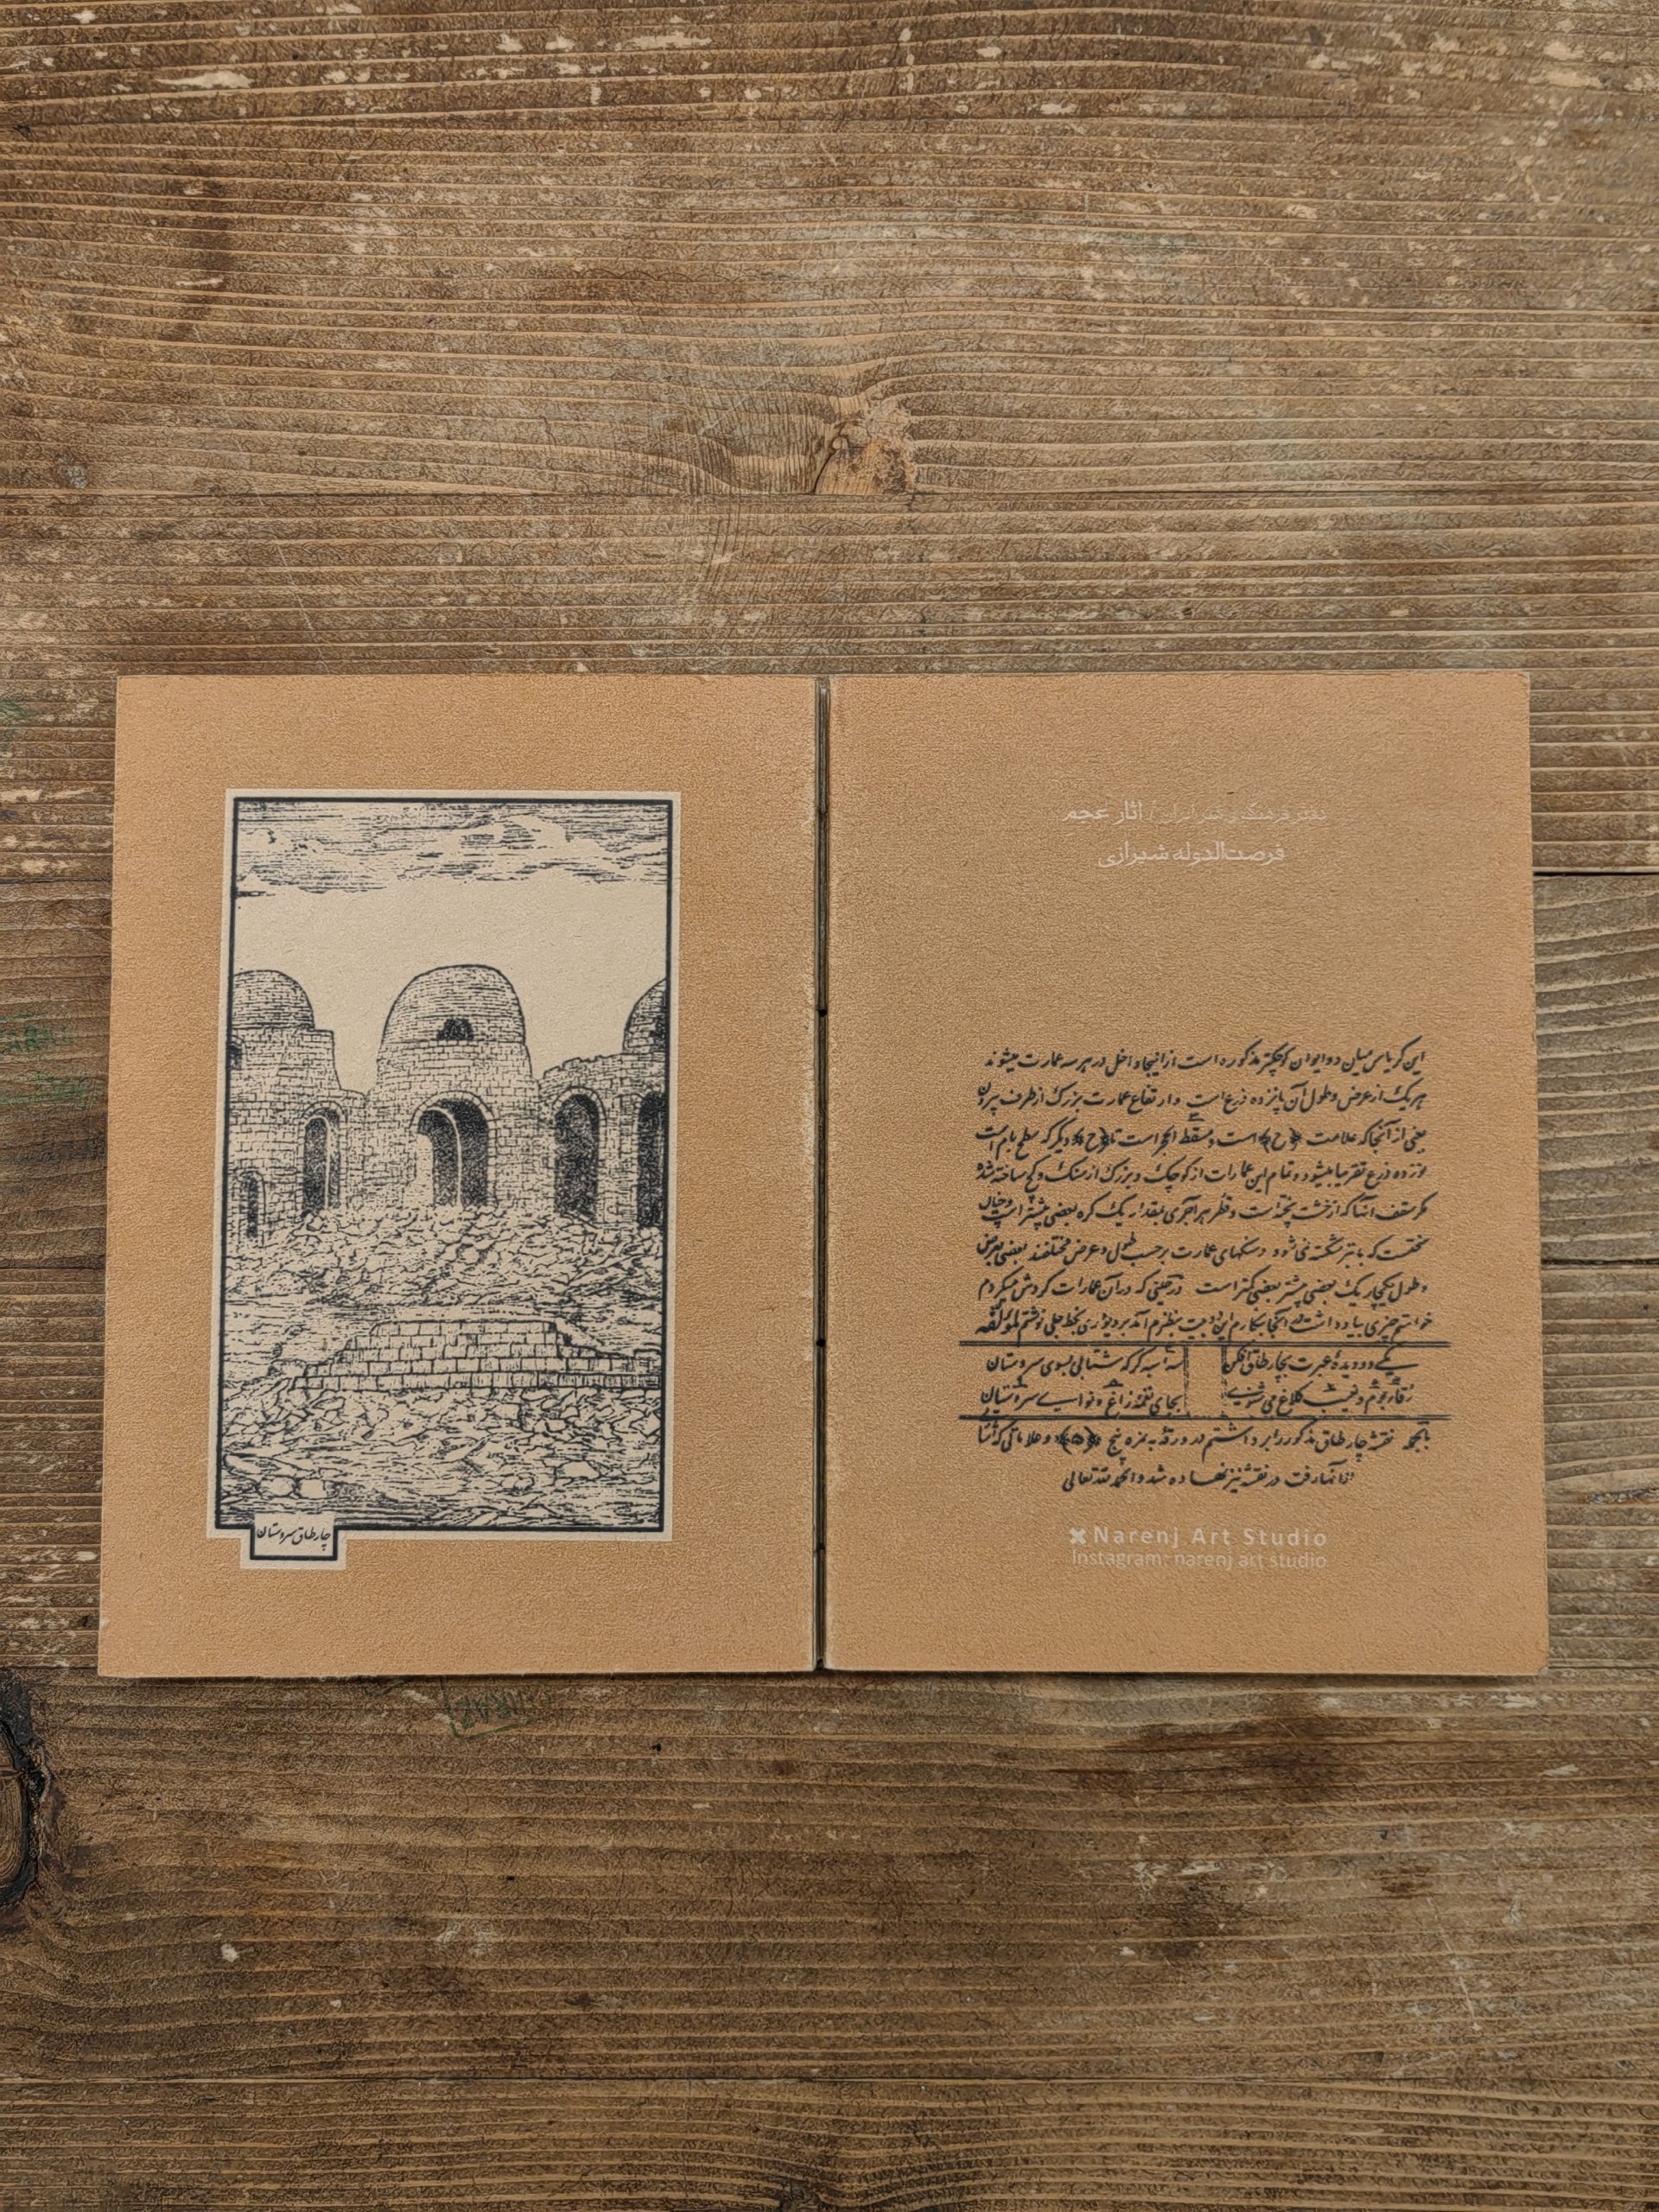 چارطاق سروستان
آثار عجم
فرصت‌الدوله شیرازی
این کریاس میان دو ایوان کوچکتر مذکوره است از اینجا داخل در هر سه عمارت میشوند
هریک از عرض و طول آن پانزده ذرع است و ارتفاع عمارت بزرگ از طرف بیرون
یعنی از آنجا که علامت ﴿ح﴾ است و مسقط الحجر است تا ﴿ح﴾ دیگر که سطح بام است
ذرع تقریبا میشود و تمام این عمارات از کوچک و بزرگ از سنگ و گچ ساخته شده
مگر سقف آنها که از خشت پخته است و قطر هر آجری بقدر یک گره بعضی بیشتر است و خیلی
که بتبر شکسته نمی شود و سنگهای عمارت برحسب طول و عرض مختلفند بعضی بعرض
و طول یکچاریک بعضی بیشتر بعضی کمتر است در حینی که در آن عمارات گردش میکردم
خواستم چیزی بیادداشت در آنجا بنگارم این دو بیت بنظرم آمد بر دیواری بخط جلی نوشتم لمؤلفه
یکی دو دیده عبرت بچارطاق فکن
سه اسبه گر که شتابی بسوی سروستان
نعیب کلاغ می شنوی
بجای نغمه زاغ و نوای سروستان
بالجمله نقشه چارطاق مذکور را برداشتم در ورقه نمره پنج ﴿۵﴾ و علاماتی که
از آنها رفت در نقشه نیز نهاده شد والحمد لله تعالی
Narenj Art Studio
Instagram: narenj art studio